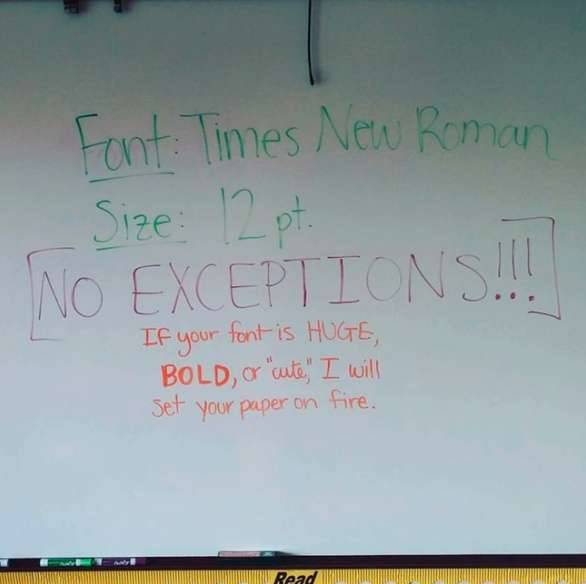 Font: Times New Roman
Size: 12 pt.
[NO EXCEPTIONS!!!]
If your font is HUGE,
BOLD, or "cute," I will
set your paper on fire.
Read